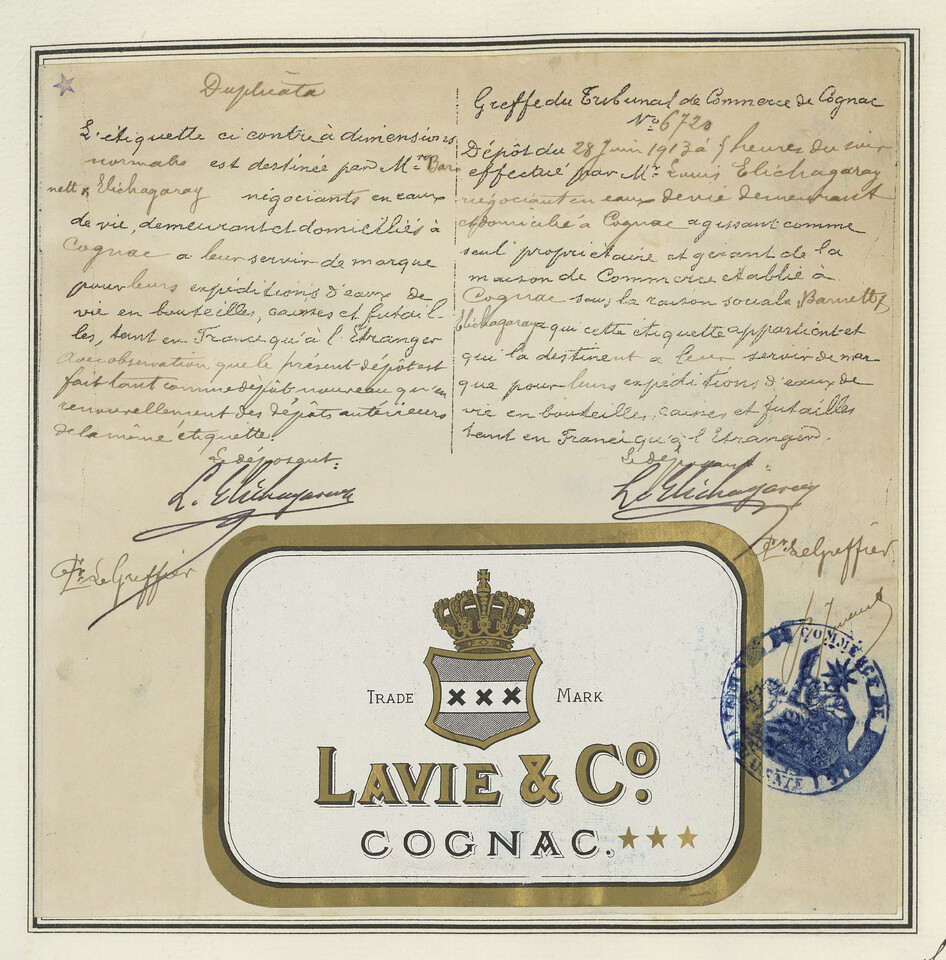 Duplicata
L'étiquette ci contre à dimensions
normales est destinée par Mrs Bar
nett & Elichagaray négociants en eaux
de vie, demeurant et domiciliés à
Cognac a leur servir de marque
pour leurs expéditions d'eaux de
vie en bouteilles, caisses et futail-
les, tant en France qu'à l'Etranger
Avec observation que le présent dépôt est
fait tant comme dépôt nouveau qu'en
renouvellement des dépôts antérieurs
de la même étiquette.
Le déposant:
L. Elichagaray
Pr Le Greffier
Greffe du Tribunal de Commerce de Cognac
No 6720
Dépôt du 28 Juin 1913 à 5 heures du soir
effectué par Mr Louis Elichagaray
négociant en eaux de vie demeurant
et domicilié à Cognac agissant comme
seul propriétaire et gérant de la
maison de Commerce établie à
Cognac sous la raison sociale Barnett &
Elichagaray à qui cette étiquette appartient et
qui la destinent a leur servir de mar
que pour leurs expéditions d'eaux de
vie en bouteilles, caisses et futailles
tant en France qu'à l'Etranger.
Le déposant:
L. Elichagaray
Pr Le Greffier
COMMERCE DE
TRADE MARK
XXX
LAVIE & Co.
COGNAC.